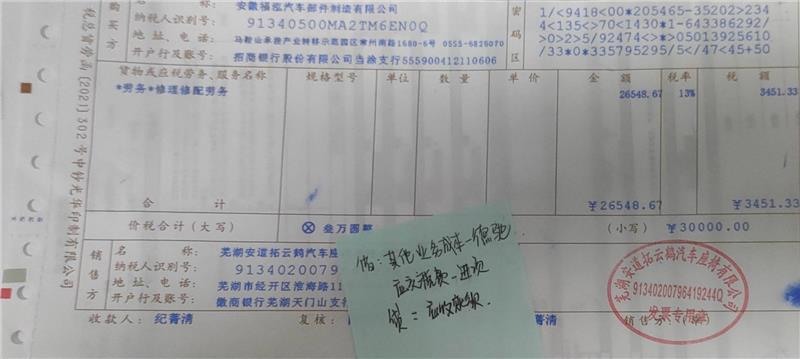 名 称: 安徽福泓汽车部件制造有限公司
纳税人识别号: 91340500MA2TM6EN0Q
地址、电话: 马鞍山承接产业转移示范园区常州南路1680-6号 0555-6826070
开户行及账号: 招商银行股份有限公司当涂支行555900412110606
购买方
密码区
1/<9418<00*205465-35202>234
4<135<>70<1430*1-643386292/
>0>2>5/92474<>*>05013925610
/33*0*335795295/5</47<45+50
税总货劳函〔2021〕302号中钞光华印制有限公司
货物或应税劳务、服务名称 规格型号 单位 数量 单价 金额 税率 税额
*劳务*修理修配劳务 26548.67 13% 3451.33
合计 ¥26548.67 ¥3451.33
价税合计(大写) ⊗叁万圆整 (小写) ¥30000.00
销售方
名 称: 芜湖安道拓云鹤汽车座
纳税人识别号: 9134020079
地址、电话: 芜湖市经开区淮海路11
开户行及账号: 徽商银行芜湖天门山支行
借: 其他业务成本-
应交税费-进项
应收账款
芜湖安道拓云鹤汽车座椅有限公司
91340200796419244Q
发票专用章
收款人: 纪菁清 复核: 菁清 销售方: